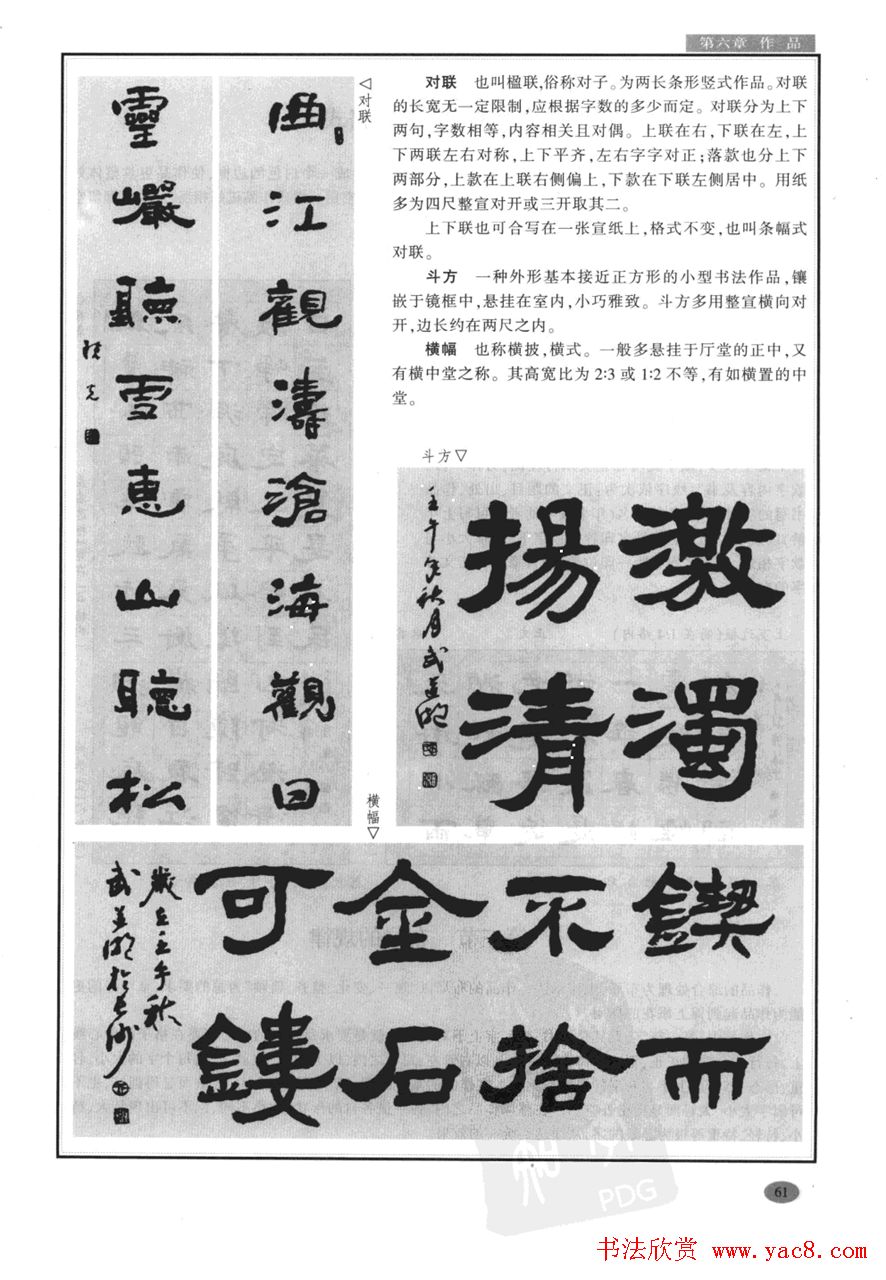 第六章 作 品
对联 也叫楹联,俗称对子。为两长条形竖式作品。对联
的长宽无一定限制,应根据字数的多少而定。对联分为上下
两句,字数相等,内容相关且对偶。上联在右,下联在左,上
下两联左右对称,上下平齐,左右字字对正;落款也分上下
两部分,上款在上联右侧偏上,下款在下联左侧居中。用纸
多为四尺整宣对开或三开取其二。
上下联也可合写在一张宣纸上,格式不变,也叫条幅式
对联。
斗方 一种外形基本接近正方形的小型书法作品,镶
嵌于镜框中,悬挂在室内,小巧雅致。斗方多用整宣横向对
开,边长约在两尺之内。
横幅 也称横披,横式。一般多悬挂于厅堂的正中,又
有横中堂之称。其高宽比为2:3或1:2不等,有如横置的中
堂。
◁对联
曲江觀濤滄海觀日
靈巖聽雪惠山聽松
斗方▽
激濁
揚清
壬午年秋月武道湘
横幅▽
鍥而
不捨
金石
可鏤
歲在壬午秋
武道湘於長沙
PDG
61
书法欣赏 www.yac8.com